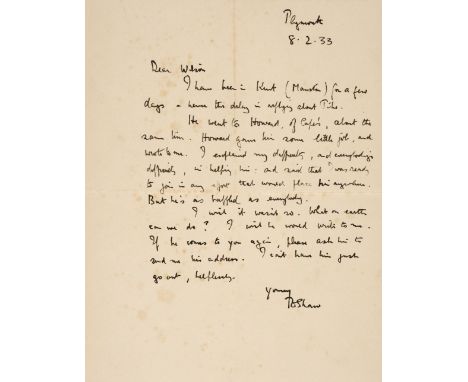 Plymouth
8.2.33
Dear Wilson
I have been in Kent (Manston) for a few
days - hence this delay in replying about
He went to Howard, of Cape's, about the
same time. Howard gave him some little job, and
wrote to me. I explained my difficulty, and everybody's
difficulty, in helping him: and said that I was ready
to join in any effort that would place him anywhere.
But he's as baffled as everybody.
I wish it wasn't so. What on earth
can we do? I wish he would write to me.
If he comes to you again, please ask him to
send me his address. I can't have him just
go out, helplessly.
Yours
TEShaw